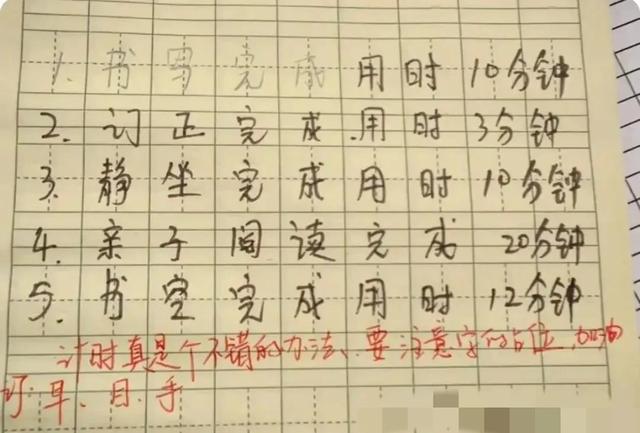 1. 书写完成用时10分钟
2. 订正完成用时3分钟
3. 静坐完成用时10分钟
4. 亲子阅读完成 20分钟
5. 书空完成用时12分钟
计时真是个不错的办法、要注意字的占位,加油
订:早、目、手